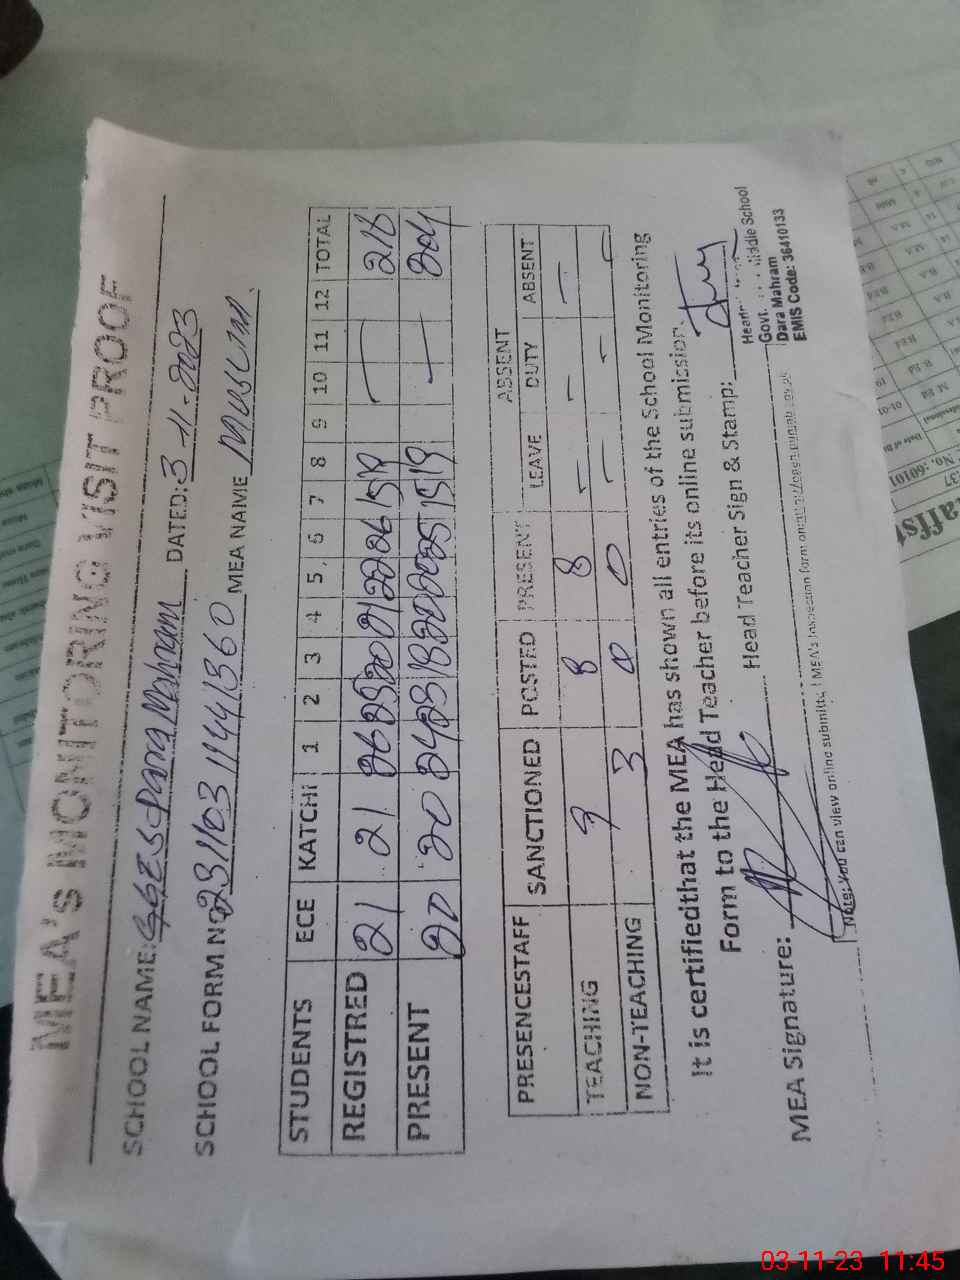 MEA's MONITORING VISIT PROOF
SCHOOL NAME: GGES Dara Mahram DATED: 3-11-2023
SCHOOL FORM NO 23110311441360 MEA NAME
STUDENTS ECE KATCHI 1 2 3 4 5 6 7 8 9 10 11 12 TOTAL
REGISTRED 21 21 26 25 20 21 22 26 15 19 — 216
PRESENT 20 20 24 23 18 20 20 25 15 19 — 204
ABSENT
PRESENCESTAFF SANCTIONED POSTED PRESENT LEAVE DUTY ABSENT
TEACHING 9 8 8 — — —
NON-TEACHING 3 0 0 — — —
It is certifiedthat the MEA has shown all entries of the School Monitoring
Form to the Head Teacher before its online submission.
MEA Signature: Head Teacher Sign & Stamp:
Govt. Middle School
Dara Mahram
EMIS Code: 36410133
Note: You can view online submitted MEA's Inspection form on
03-11-23 11:45